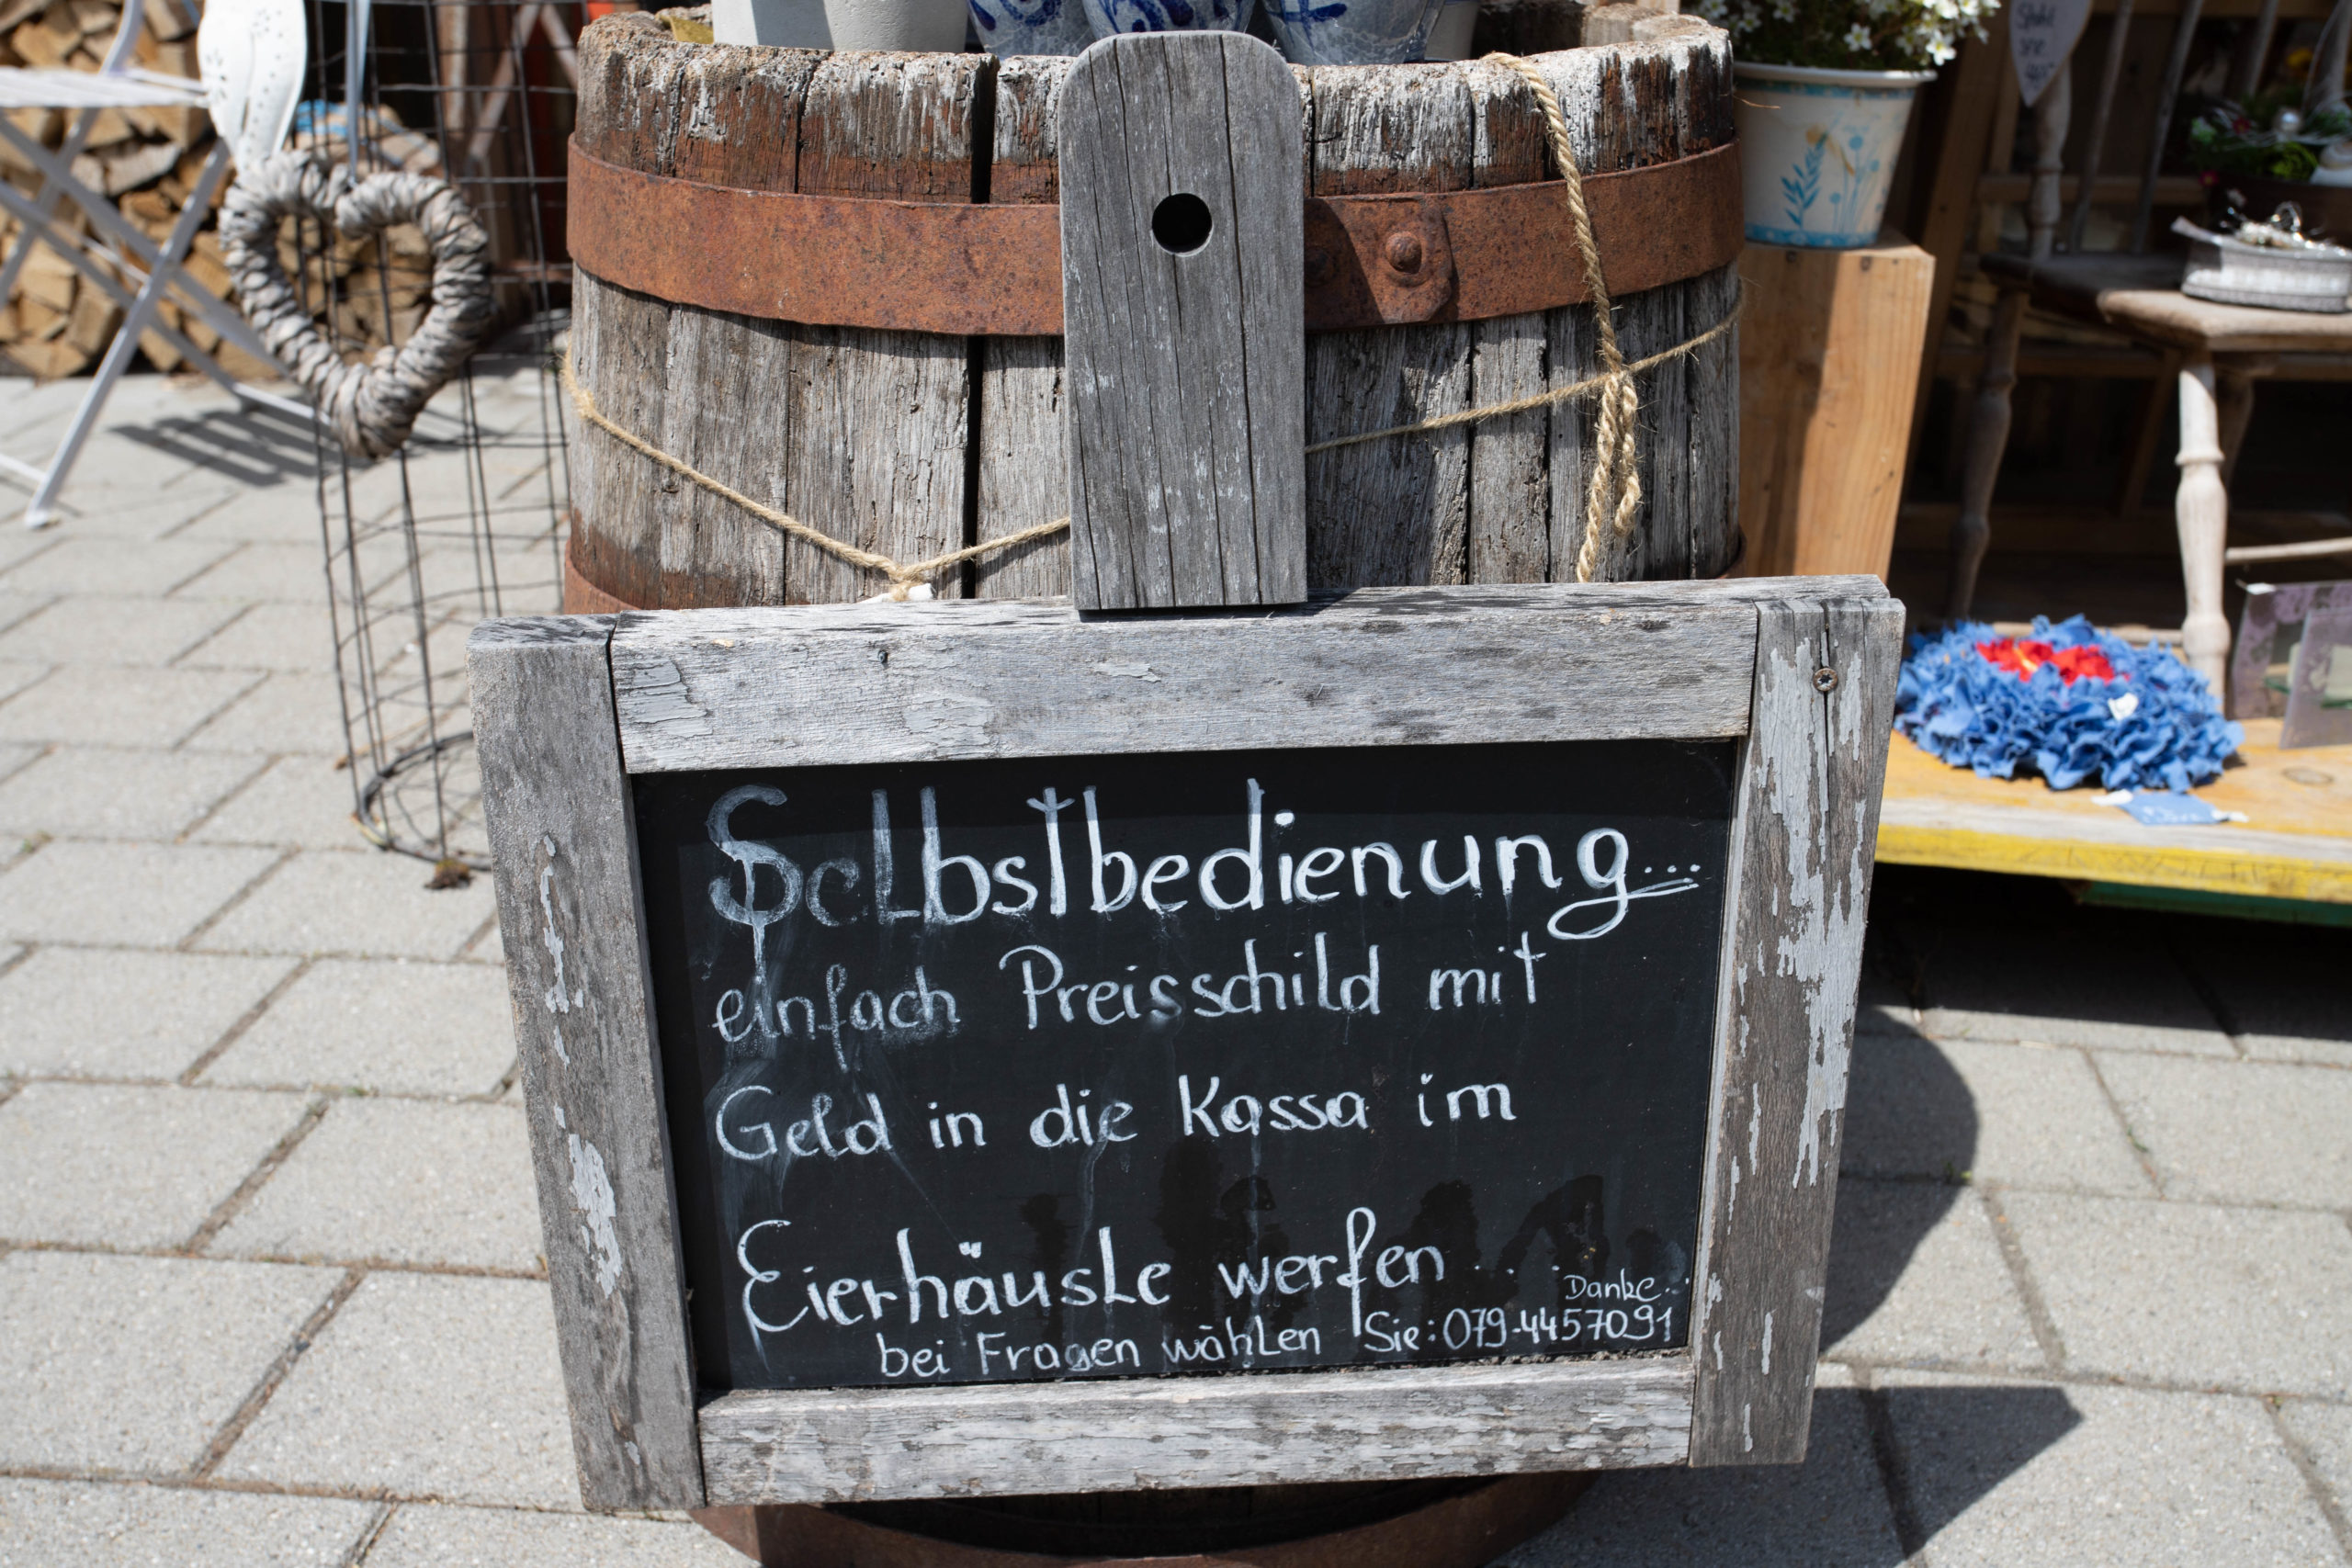 Selbstbedienung...
einfach Preisschild mit
Geld in die Kassa im
Eierhäusle werfen...
Danke..
bei Fragen wählen Sie: 079-4457091